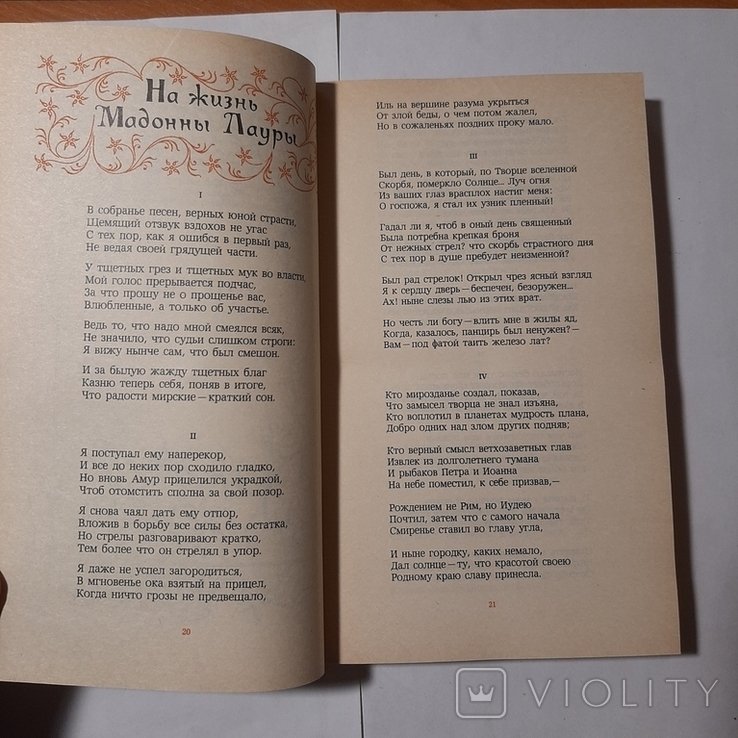 На жизнь
Мадонны Лауры
I
В собранье песен, верных юной страсти,
Щемящий отзвук вздохов не угас
С тех пор, как я ошибся в первый раз,
Не ведая своей грядущей части.
У тщетных грез и тщетных мук во власти,
Мой голос прерывается подчас,
За что прошу не о прощенье вас,
Влюбленные, а только об участье.
Ведь то, что надо мной смеялся всяк,
Не значило, что судьи слишком строги:
Я вижу нынче сам, что был смешон.
И за былую жажду тщетных благ
Казню теперь себя, поняв в итоге,
Что радости мирские — краткий сон.
II
Я поступал ему наперекор,
И все до неких пор сходило гладко,
Но вновь Амур прицелился украдкой,
Чтоб отомстить сполна за свой позор.
Я снова чаял дать ему отпор,
Вложив в борьбу все силы без остатка,
Но стрелы разговаривают кратко,
Тем более что он стрелял в упор.
Я даже не успел загородиться,
В мгновенье ока взятый на прицел,
Когда ничто грозы не предвещало,
20
Иль на вершине разума укрыться
От злой беды, о чем потом жалел,
Но в сожаленьях поздних проку мало.
III
Был день, в который, по Творце вселенной
Скорбя, померкло Солнце... Луч огня
Из ваших глаз врасплох настиг меня:
О госпожа, я стал их узник пленный!
Гадал ли я, чтоб в оный день священный
Была потребна крепкая броня
От нежных стрел? что скорбь страстного дня
С тех пор в душе пребудет неизменной?
Был рад стрелок! Открыл чрез ясный взгляд
Я к сердцу дверь — беспечен, безоружен...
Ах! ныне слезы лью из этих врат.
Но честь ли богу — влить мне в жилы яд,
Когда, казалось, панцирь был ненужен? —
Вам — под фатой таить железо лат?
IV
Кто мирозданье создал, показав,
Что замысел творца не знал изъяна,
Кто воплотил в планетах мудрость плана,
Добро одних над злом других подняв;
Кто верный смысл ветхозаветных глав
Извлек из долголетнего тумана
И рыбаков Петра и Иоанна
На небе поместил, к себе призвав, —
Рождением не Рим, но Иудею
Почтил, затем что с самого начала
Смиренье ставил во главу угла,
И ныне городку, каких немало,
Дал солнце — ту, что красотой своею
Родному краю славу принесла.
21
VIOLITY